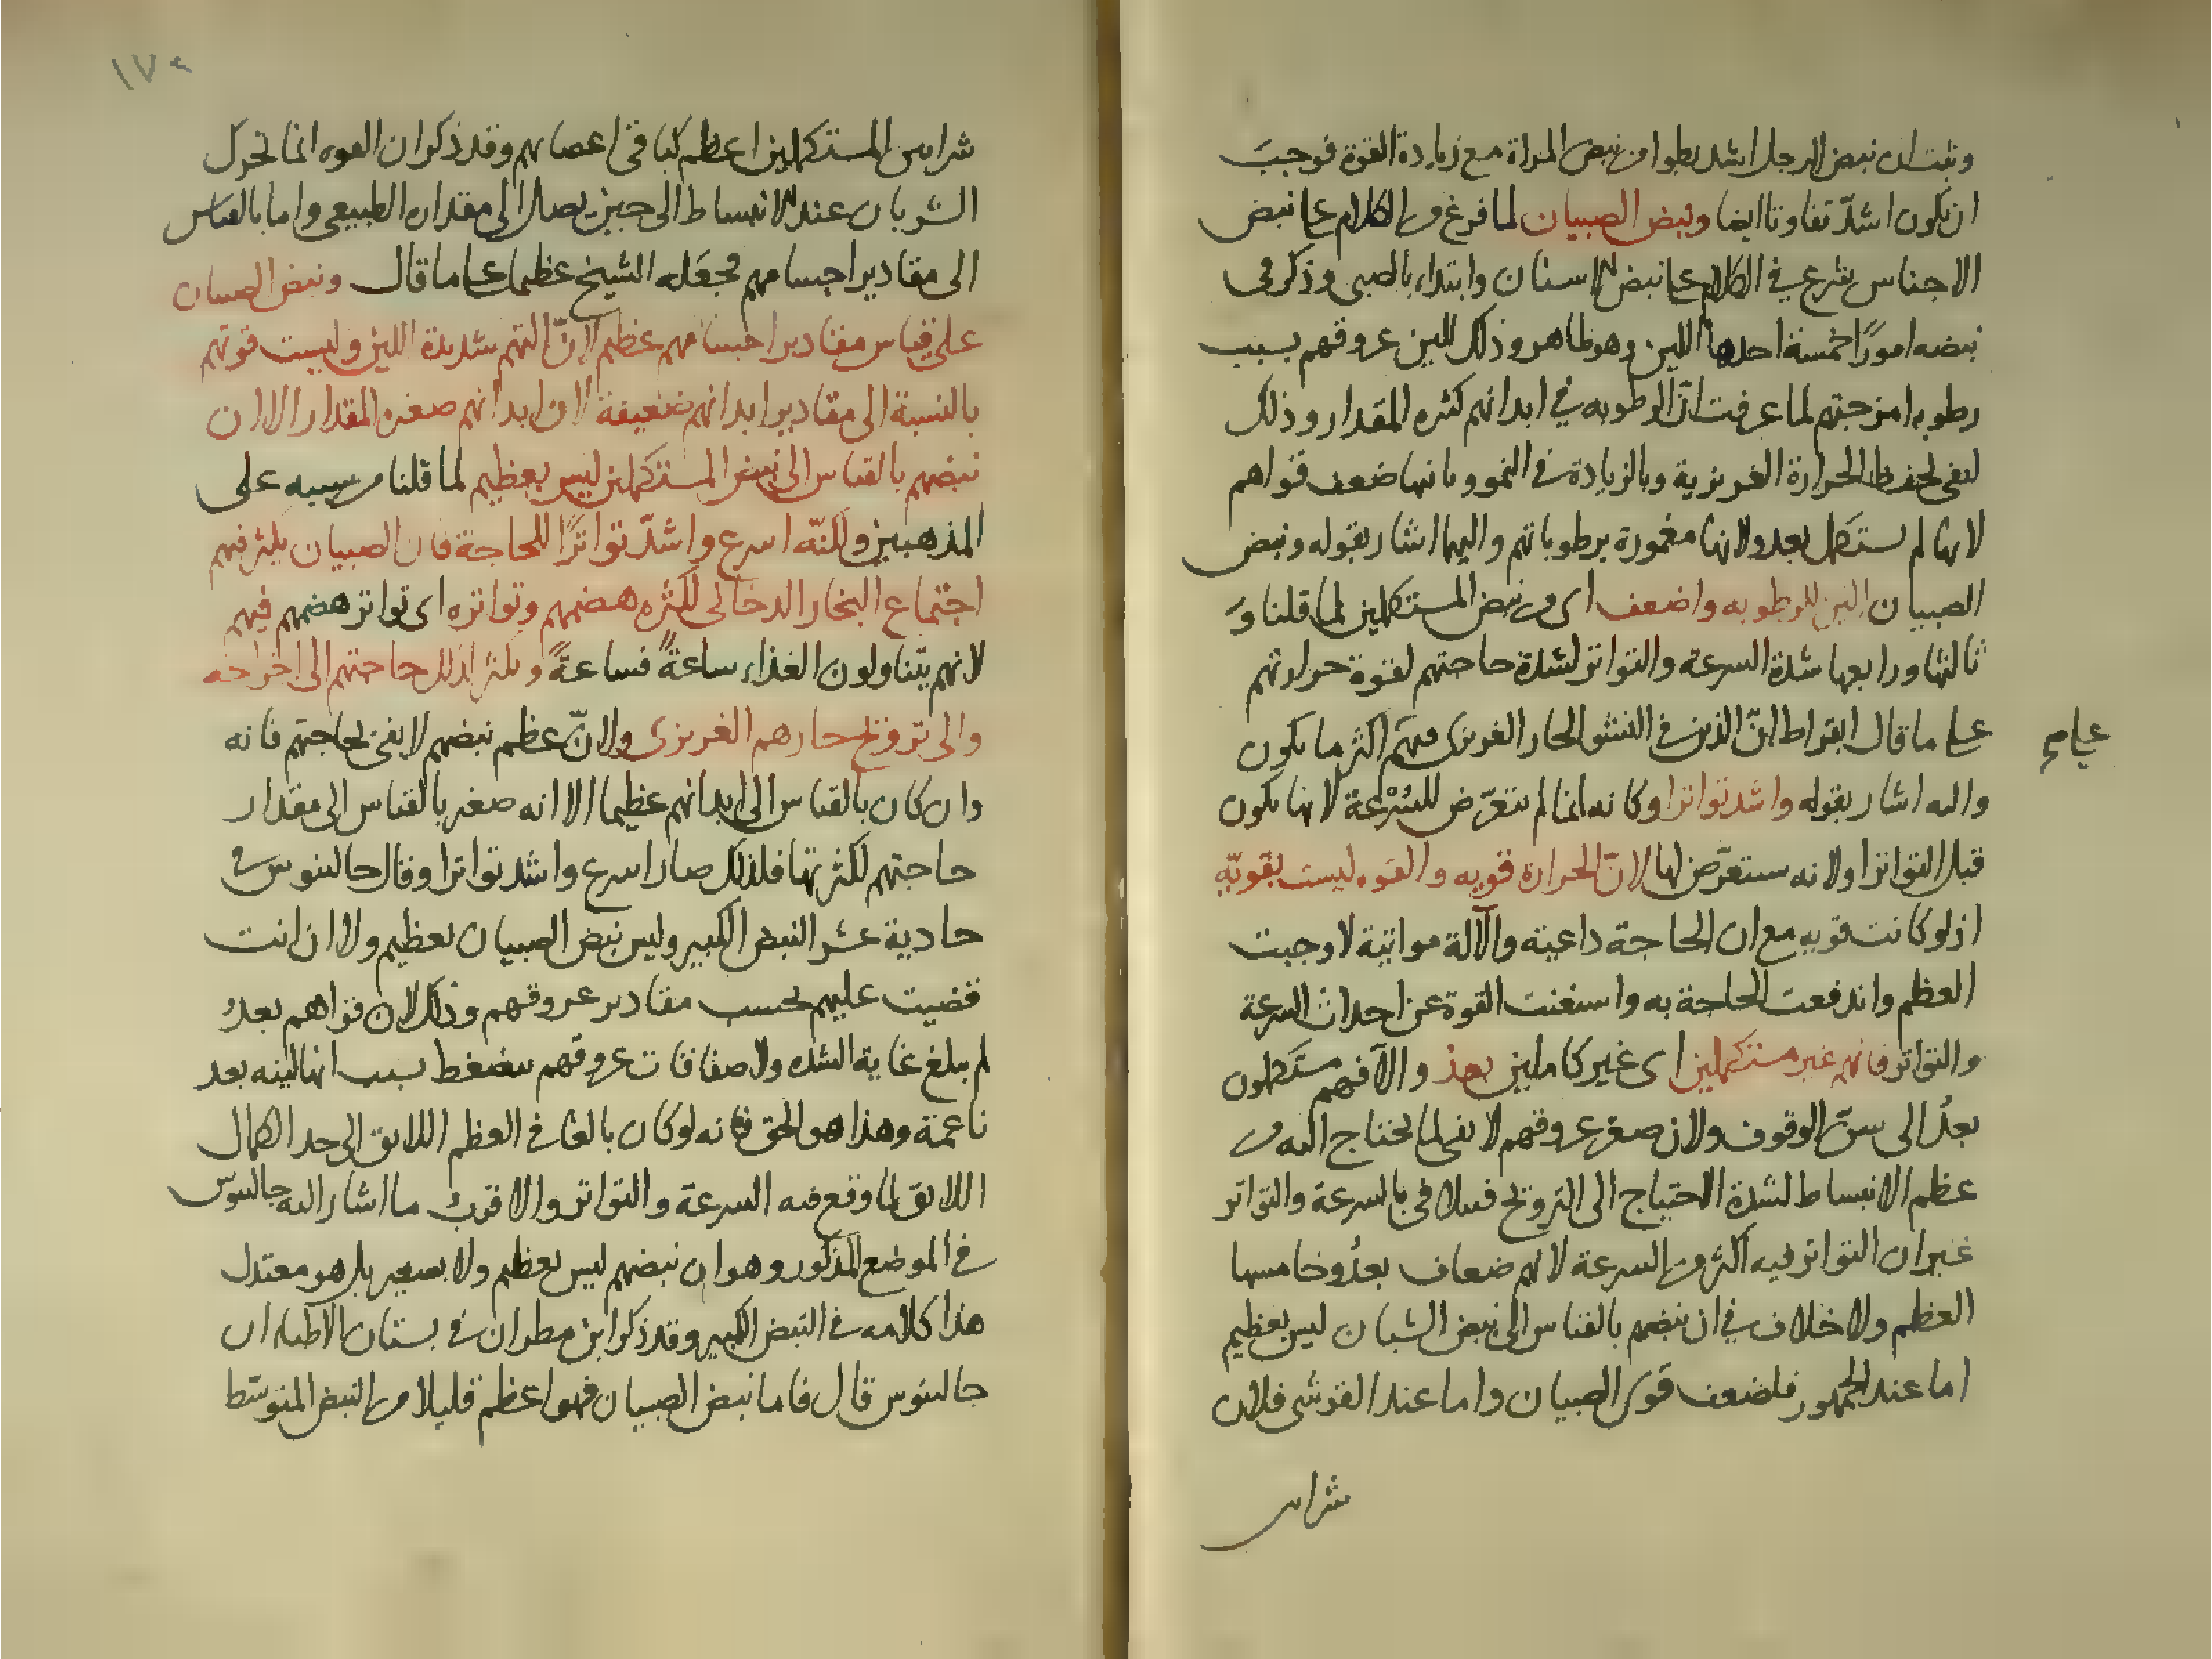 وثبت ان نبض الرجل اشد بطوا من نبض المراة مع زيادة القوة فوجب
ان يكون اشدّ تفاوتا ايضا ونبض الصبيان لما فرغ من الكلام على نبض
الاجناس شرع في الكلام على نبض الاسنان وابتداء بالصبى وذكر فى
نبضه امورًا خمسة احدها اللين وهو ظاهر وذلك للين عروقهم بسبب
رطوبه امزجتهم لما عرفت انّ الرطوبه في ابدانهم كثره المقدار وذلك
لتفى بحفظ الحرارة الغريزية وبالزيادة في النمو وثانيها ضعف قواهم
لانها لم تستكمل بعد ولانها مغمورة برطوباتهم واليها اشار بقوله ونبض
الصبيان الين للرطوبه واضعف اى من نبض المستكملين لما قلنا وَ
ثالثها ورابعها شدة السرعة والتواتر لشدة حاجتهم لقوة حرارتهم
على ما قال ابقراط انّ الذين في النشو الحار الغريزى فيهم اكثر ما يكون
على م
واليه اشار بقوله واشد تواترا وكانه انما لم يتعرّض للسُرْعة لانها يكون
قبل التواتر او لانه سيتعرّض لها لانّ الحرارة قويه والقوه ليست بقويّه
اذ لو كانت قويه مع ان الحاجة داعية والآلة مواتية لاوجبت
العظم واندفعت الحاجة به واستغنت القوة عن احداث السرعة
والتواتر فانهم غير مستكملين اى غير كاملين بعدُ والآفهم مستكملون
بعدُ الى سنّ الوقوف ولان صغر عروقهم لا يفى لما يحتاج اليه من
عظم الانبساط لشدة الاحتياج الى الترويح فيتلافى بالسرعة والتواتر
غير ان التواتر فيه اكثر من السرعة لانهم ضعاف بعدُ وخامسها
العظم ولا خلاف في ان نبضهم بالقياس الى نبض الشبان ليس بعظيم
اما عند الجمهور فلضعف قوى الصبيان واما عند القرشى فلان
شراىين
١٧٢
شراىين المستكملين اعظم كما فى اعصابهم وقد ذكر ان القوه انما تحرك
الشريان عند الانبساط الى حين يصل الى مقداره الطبيعى واما بالقياس
الى مقادير اجسامهم فجعله الشيخ عظيما على ما قال ونبض الصبيان
على قياس مقادير اجسامهم عظيم لانّ التهم شديدة اللين وليست قوتهم
بالنسبة الى مقادير ابدانهم ضعيفة لان ابدانهم صغيره المقدار الا ان
نبضهم بالقياس الى نبض المستكملين ليس بعظيم لما قلنا من سببه على
المذهبين ولكنّه اسرع واشدّ تواترًا للحاجة فان الصبيان يكثر فيهم
اجتماع البخار الدخانى لكثره هضمهم وتواتره اى تواتر هضمهم فيهم
لانهم يتناولون الغذاء ساعةً فساعةً ويكثر لذلك حاجتهم الى اخراجه
والى ترويح حارهم الغريزى ولانّ عظم نبضهم لا يفى بحاجتهم فانه
وان كان بالقياس الى ابدانهم عظيما الا انه صغير بالقياس الى مقدار
حاجتهم لكثرتها فلذلك صار اسرع واشد تواترا وقال جالينوس في
حادية عشر النبض الكبير وليس نبض الصبيان بعظيم ولا ان انت
قضيت عليهم بحسب مقادير عروقهم وذلك لان قواهم بعدُ
لم يبلغ غاية الشده ولا صفاقات عروقهم بسبب انها لينه بعد
ناعمة وهذا هو الحق فانه لو كان بالغا في العظم اللايق الى حد الكمال
اللايق لما وقع فيه السرعة والتواتر والاقرب ما اشار اليه جالينوس
في الموضع المذكور وهو ان نبضهم ليس بعظيم ولا بصغير بل هو معتدل
هذا كلامه في النبض الكبير وقد ذكر ابن مطران في بستان الاطباء ان
جالينوس قال فاما نبض الصبيان فهو اعظم قليلا من النبض المتوسّط